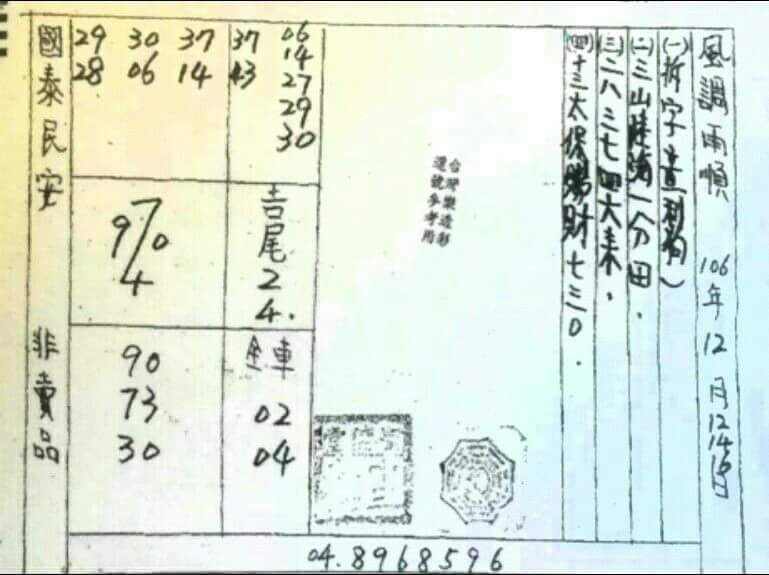 風調雨順 106年12月12 14 16日
(一)拆字
(二)三山 一分田.
(三)二八三七四六來.
(四)十三太保賜財七三0.
台灣樂透彩
選號參考用
06
14
27
29
30
37
43
37
14
30
06
29
28
吉尾24.
7
9/0
4
全車
02
04
90
73
30
國泰民安 非賣品
04.8968596